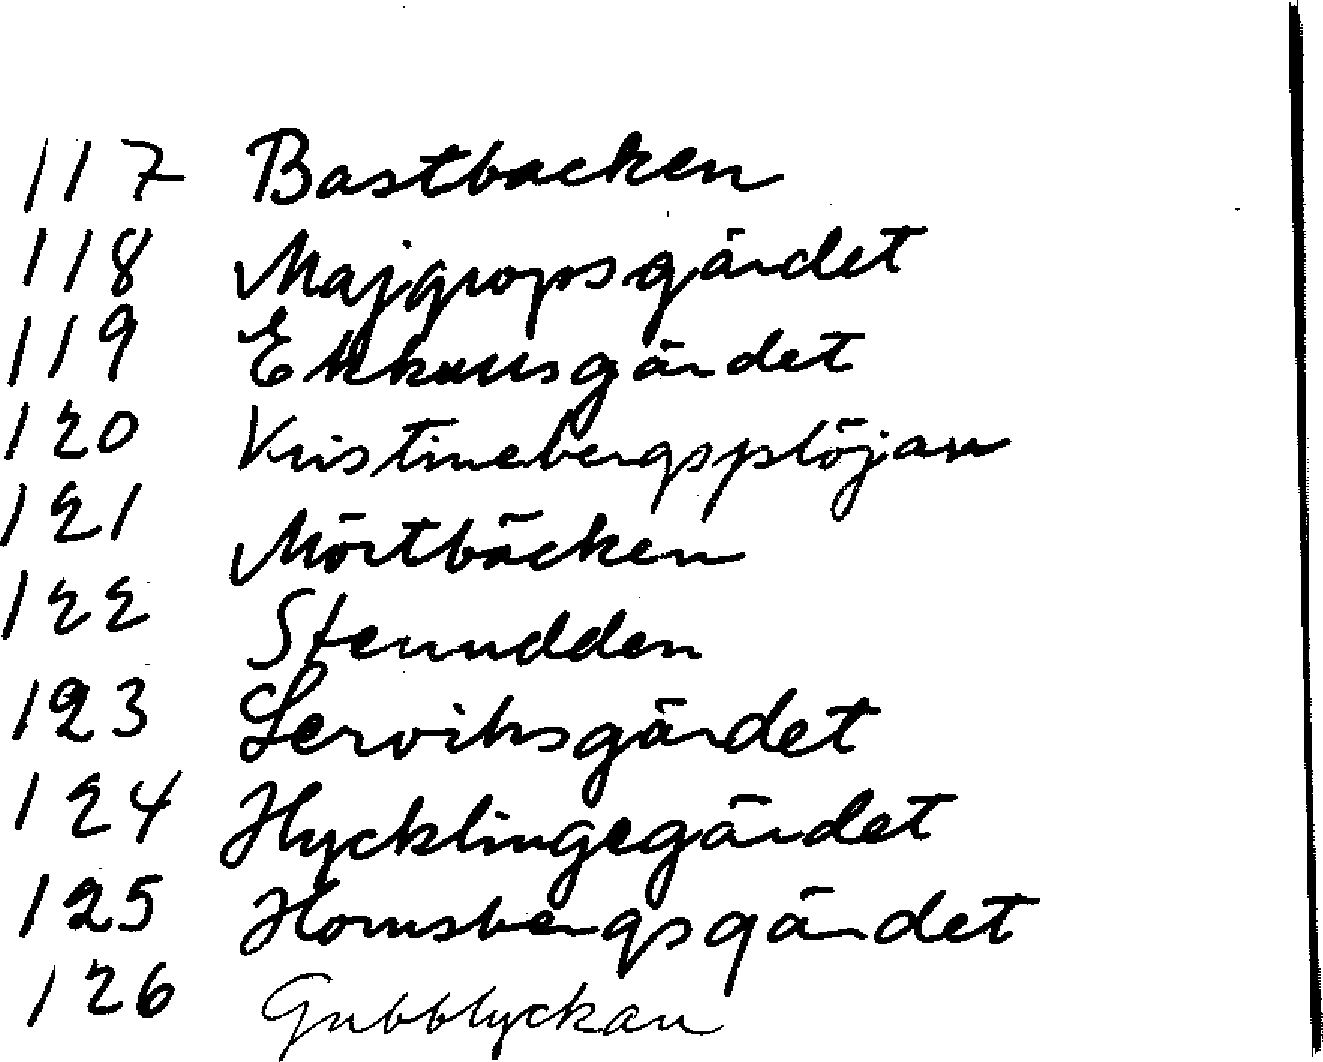 117 Bastbacken
118 Majgropsgärdet
119
120 Kristinebergsplöjan
121 Mörtbäcken
122 Stenudden
123 Lerviksgärdet
124 Hycklingegärdet
125 Hornsbergsgärdet
126 Gubblyckan